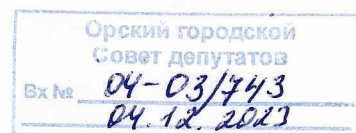 Орский городской
Совет депутатов
Вх № 04-03/743
04.12.2023